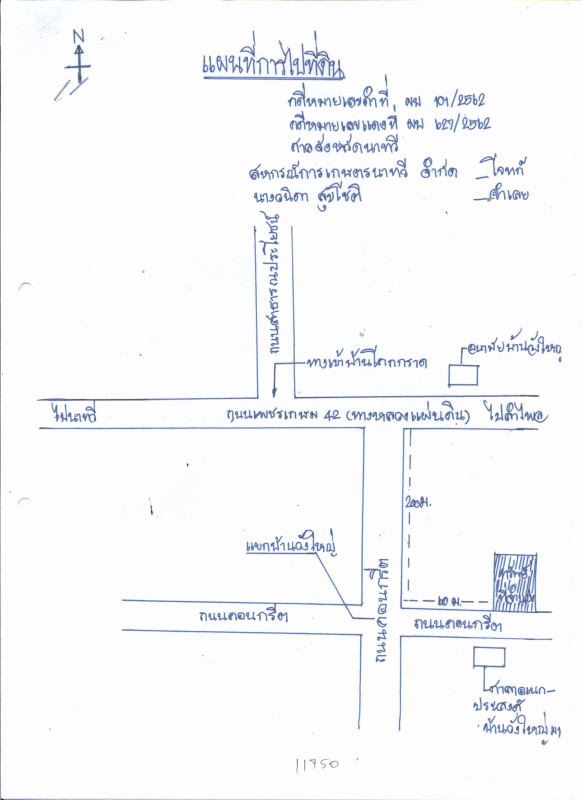 N
แผนที่การไปที่ดิน
คดีหมายเลขดำที่ ผบ 101/2562
คดีหมายเลขแดงที่ ผบ 627/2562
ศาลจังหวัดนาทวี
สหกรณ์การเกษตรนาทวี จำกัด โจทก์
นางวนิดา สุขโชติ จำเลย
ถนนสาธารณประโยชน์
ทางเข้าบ้านโคกกราด
อนามัยบ้านวังใหญ่
ไปนาทวี
ถนนเพชรเกษม 42 (ทางหลวงแผ่นดิน)
ไปลำไพล
200 ม.
แยกบ้านวังใหญ่
ถนนคอนกรีต
ทรัพย์
ที่
60 ม.
ถนนคอนกรีต
ถนนคอนกรีต
ศาลาอเนก-
ประสงค์
บ้านวังใหญ่
11950